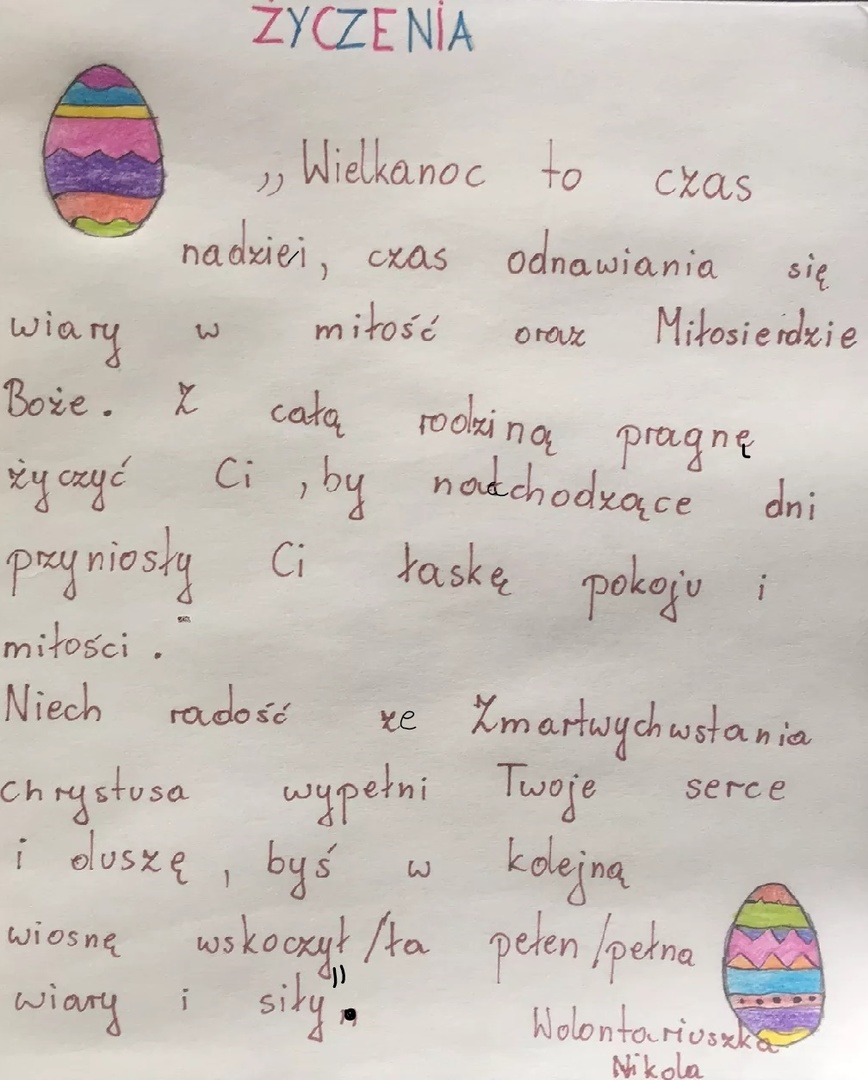 ŻYCZENIA
,,Wielkanoc to czas
nadziei, czas odnawiania się
wiary w miłość oraz Miłosierdzie
Boże. Z całą rodziną pragnę
życzyć Ci, by nadchodzące dni
przyniosły Ci łaskę pokoju i
miłości.
Niech radość ze Zmartwychwstania
chrystusa wypełni Twoje serce
i duszę, byś w kolejną
wiosnę wskoczył/ła pełen/pełna
wiary i siły".
Wolontariuszka
Nikola